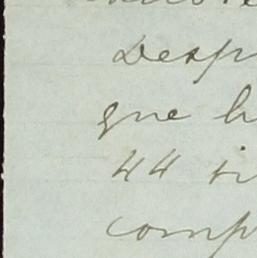 Desp
que h
44 ti
comp